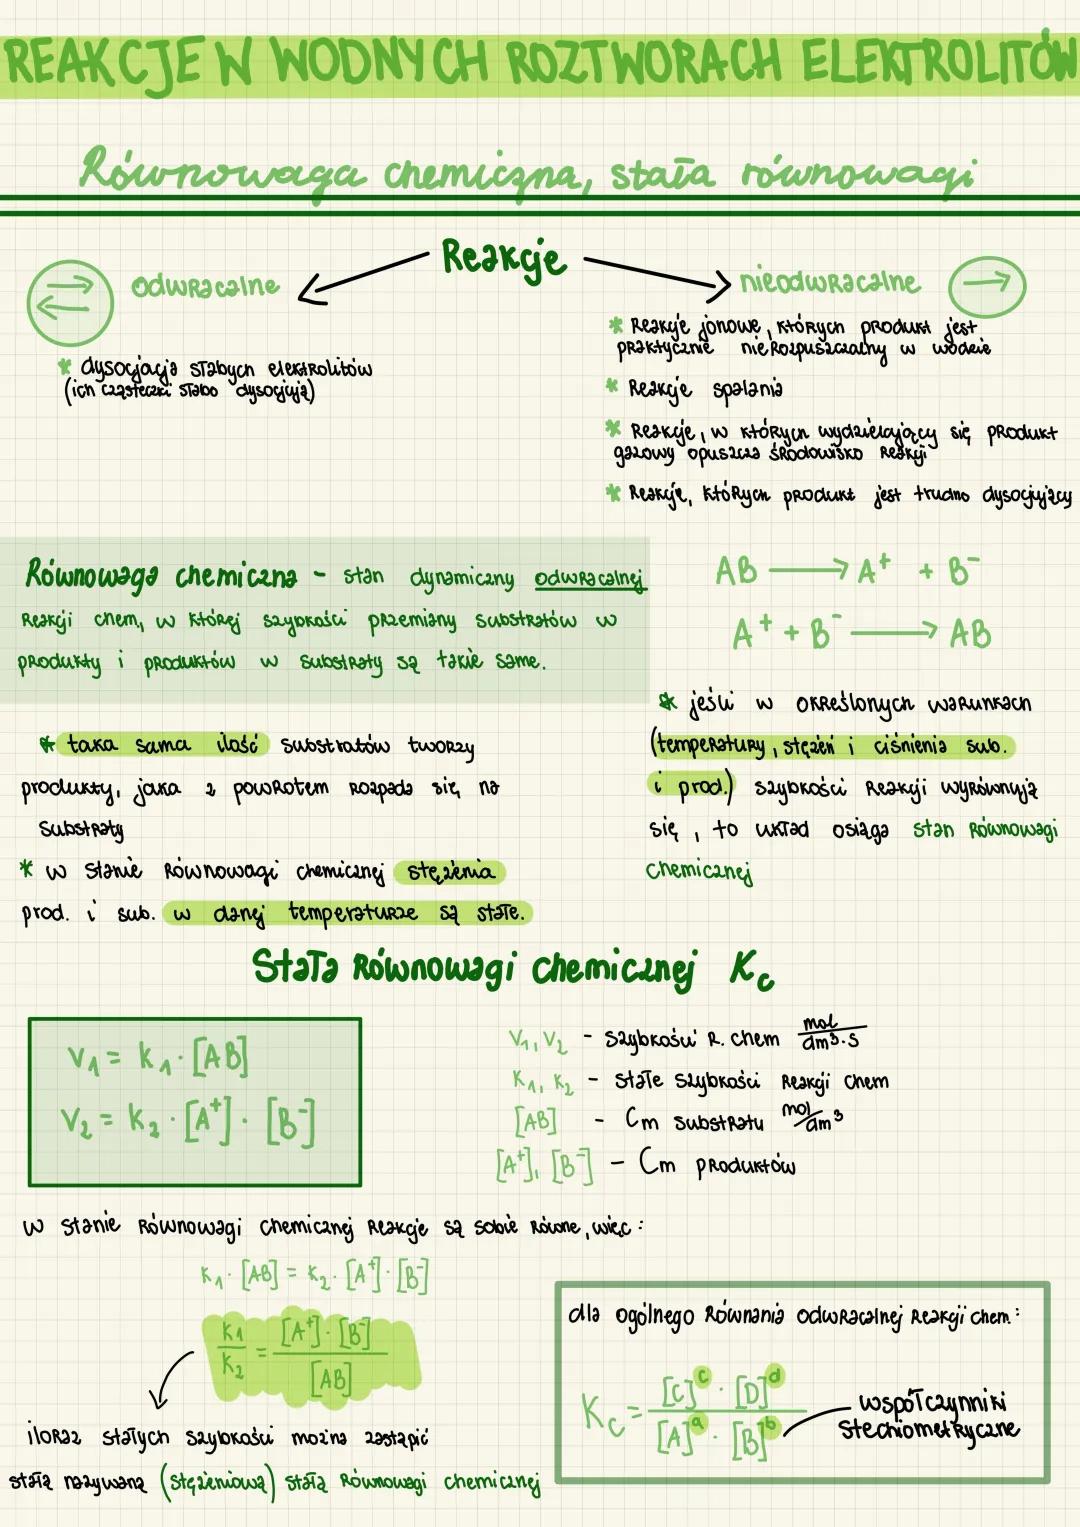 REAKCJE W WODNYCH ROZTWORACH ELEKTROLITÓW
Równowaga chemiczna, stała równowagi
Reakcje
odwracalne
nieodwracalne
* dysocjacja słabych elektrolitów
(ich cząsteczki słabo dysocjują)
* Reakcje jonowe, których produkt jest
praktycznie nierozpuszczalny w wodzie
* Reakcje spalania
* Reakcje, w których wydzielający się produkt
gazowy opuszcza środowisko reakcji
* Reakcje, których produkt jest trudno dysocjujący
Równowaga chemiczna - stan dynamiczny odwracalnej
reakcji chem., w której szybkości przemiany substratów w
produkty i produktów w substraty są takie same.
AB → A⁺ + B⁻
A⁺ + B⁻ → AB
* taka sama ilość substratów tworzy
produkty, jaka z powrotem rozpada się na
substraty
* w stanie równowagi chemicznej stężenia
prod. i sub. w danej temperaturze są stałe.
* jeśli w określonych warunkach
(temperatury, stężeń i ciśnienia sub.
i prod.) szybkości reakcji wyrównują
się, to układ osiąga stan równowagi
chemicznej
Stała równowagi chemicznej Kc
V₁ = k₁ · [AB]
V₂ = k₂ · [A⁺] · [B⁻]
V₁, V₂ - szybkości r. chem mol/dm³·s
K₁, K₂ - stałe szybkości reakcji chem
[AB] - Cm substratu mol/dm³
[A⁺], [B⁻] - Cm produktów
w stanie równowagi chemicznej reakcje są sobie równe, więc:
k₁ · [AB] = k₂ · [A⁺] · [B⁻]
k₁/k₂ = [A⁺] · [B⁻]/[AB]
iloraz stałych szybkości można zastąpić
stałą nazywaną (stężeniową) stałą równowagi chemicznej
dla ogólnego równania odwracalnej reakcji chem:
Kc = [C]ᶜ · [D]ᵈ/[A]ᵃ · [B]ᵇ
współczynniki
stechiometryczne